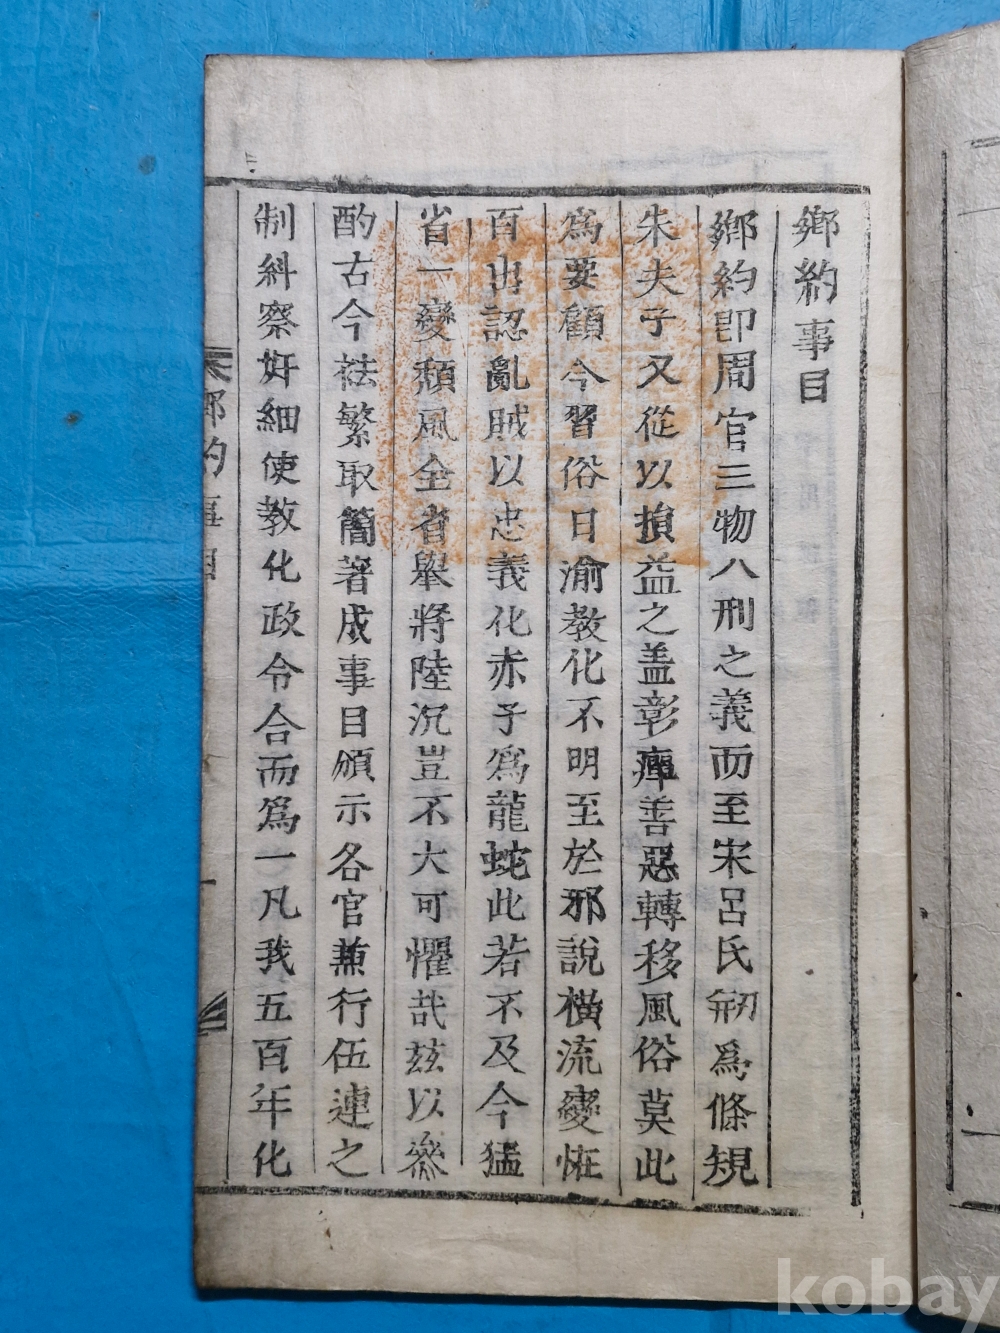 鄕約事目
鄕約卽周官三物八刑之義而至宋呂氏刱爲條規
朱夫子又從以損益之盖彰癉善惡轉移風俗莫此
爲要顧今習俗日渝敎化不明至於邪說橫流變恠
百出認亂賊以忠義化赤子爲龍蛇此若不及今猛
省一變頹風全省擧將陸沉豈不大可懼哉玆以叅
酌古今祛繁取簡著成事目頒示各官兼行伍連之
制糾察奸細使敎化政令合而爲一凡我五百年化
鄕約事目
一
kobay